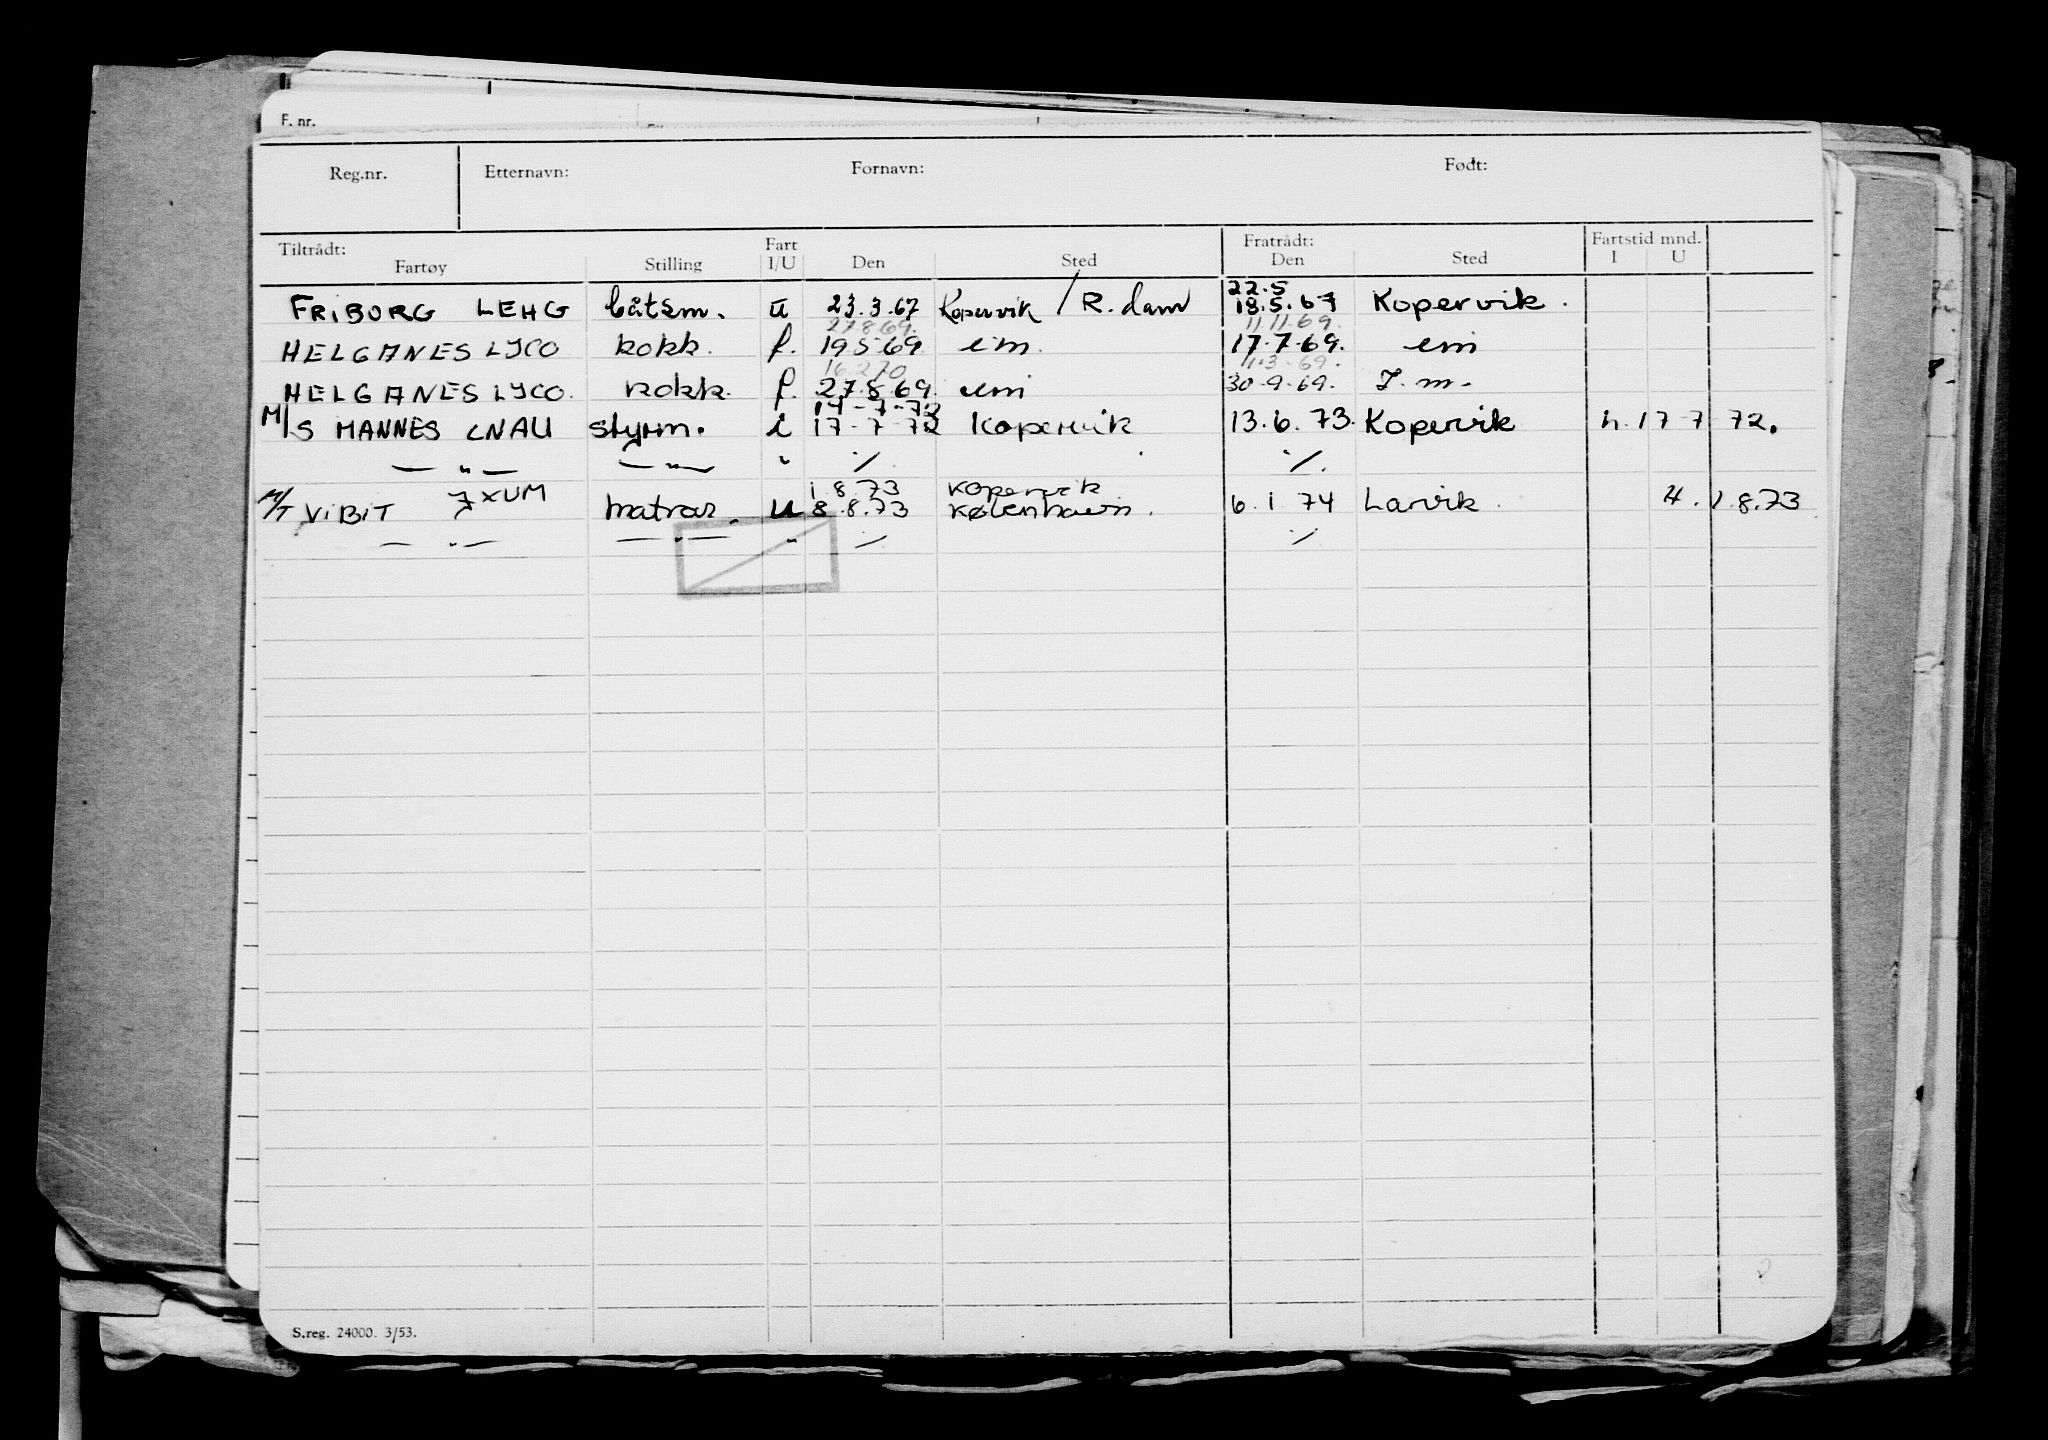 F. nr.
Reg.nr. Etternavn: Fornavn: Født:
Tiltrådt: Fart Fratrådt: Fartstid mnd.
Fartøy Stilling I/U Den Sted Den Sted I U
22.5
FRIBORG LEHG båtsm. u 23.3.67 Kopervik / R.dam 18.5.67 Kopervik.
27.8.69. 11.11.69.
HELGANES LJCO kokk. f. 19.5.69 em. 17.7.69. em
16.2.70 1.3.69.
HELGANES LJCO. kokk. f. 27.8.69. em 30.9.69. J.m.
14-7-72
M/S MANNES LNAU styrm. i 17-7-72 Kopervik 13.6.73. Kopervik h. 17 7 72.
— " — — " — " ./. ./.
1.8.73 Kopervik
M/T VIBIT JXUM matros. u 8.8.73 København. 6.1.74 Larvik. H. 1.8.73
— " — — " — " ./. ./.
S.reg. 24000. 3/53.